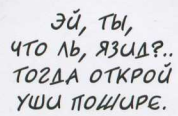 ЭЙ, ТЫ,
ЧТО ЛЬ, ЯЗИД?..
ТОГДА ОТКРОЙ
УШИ ПОШИРЕ.